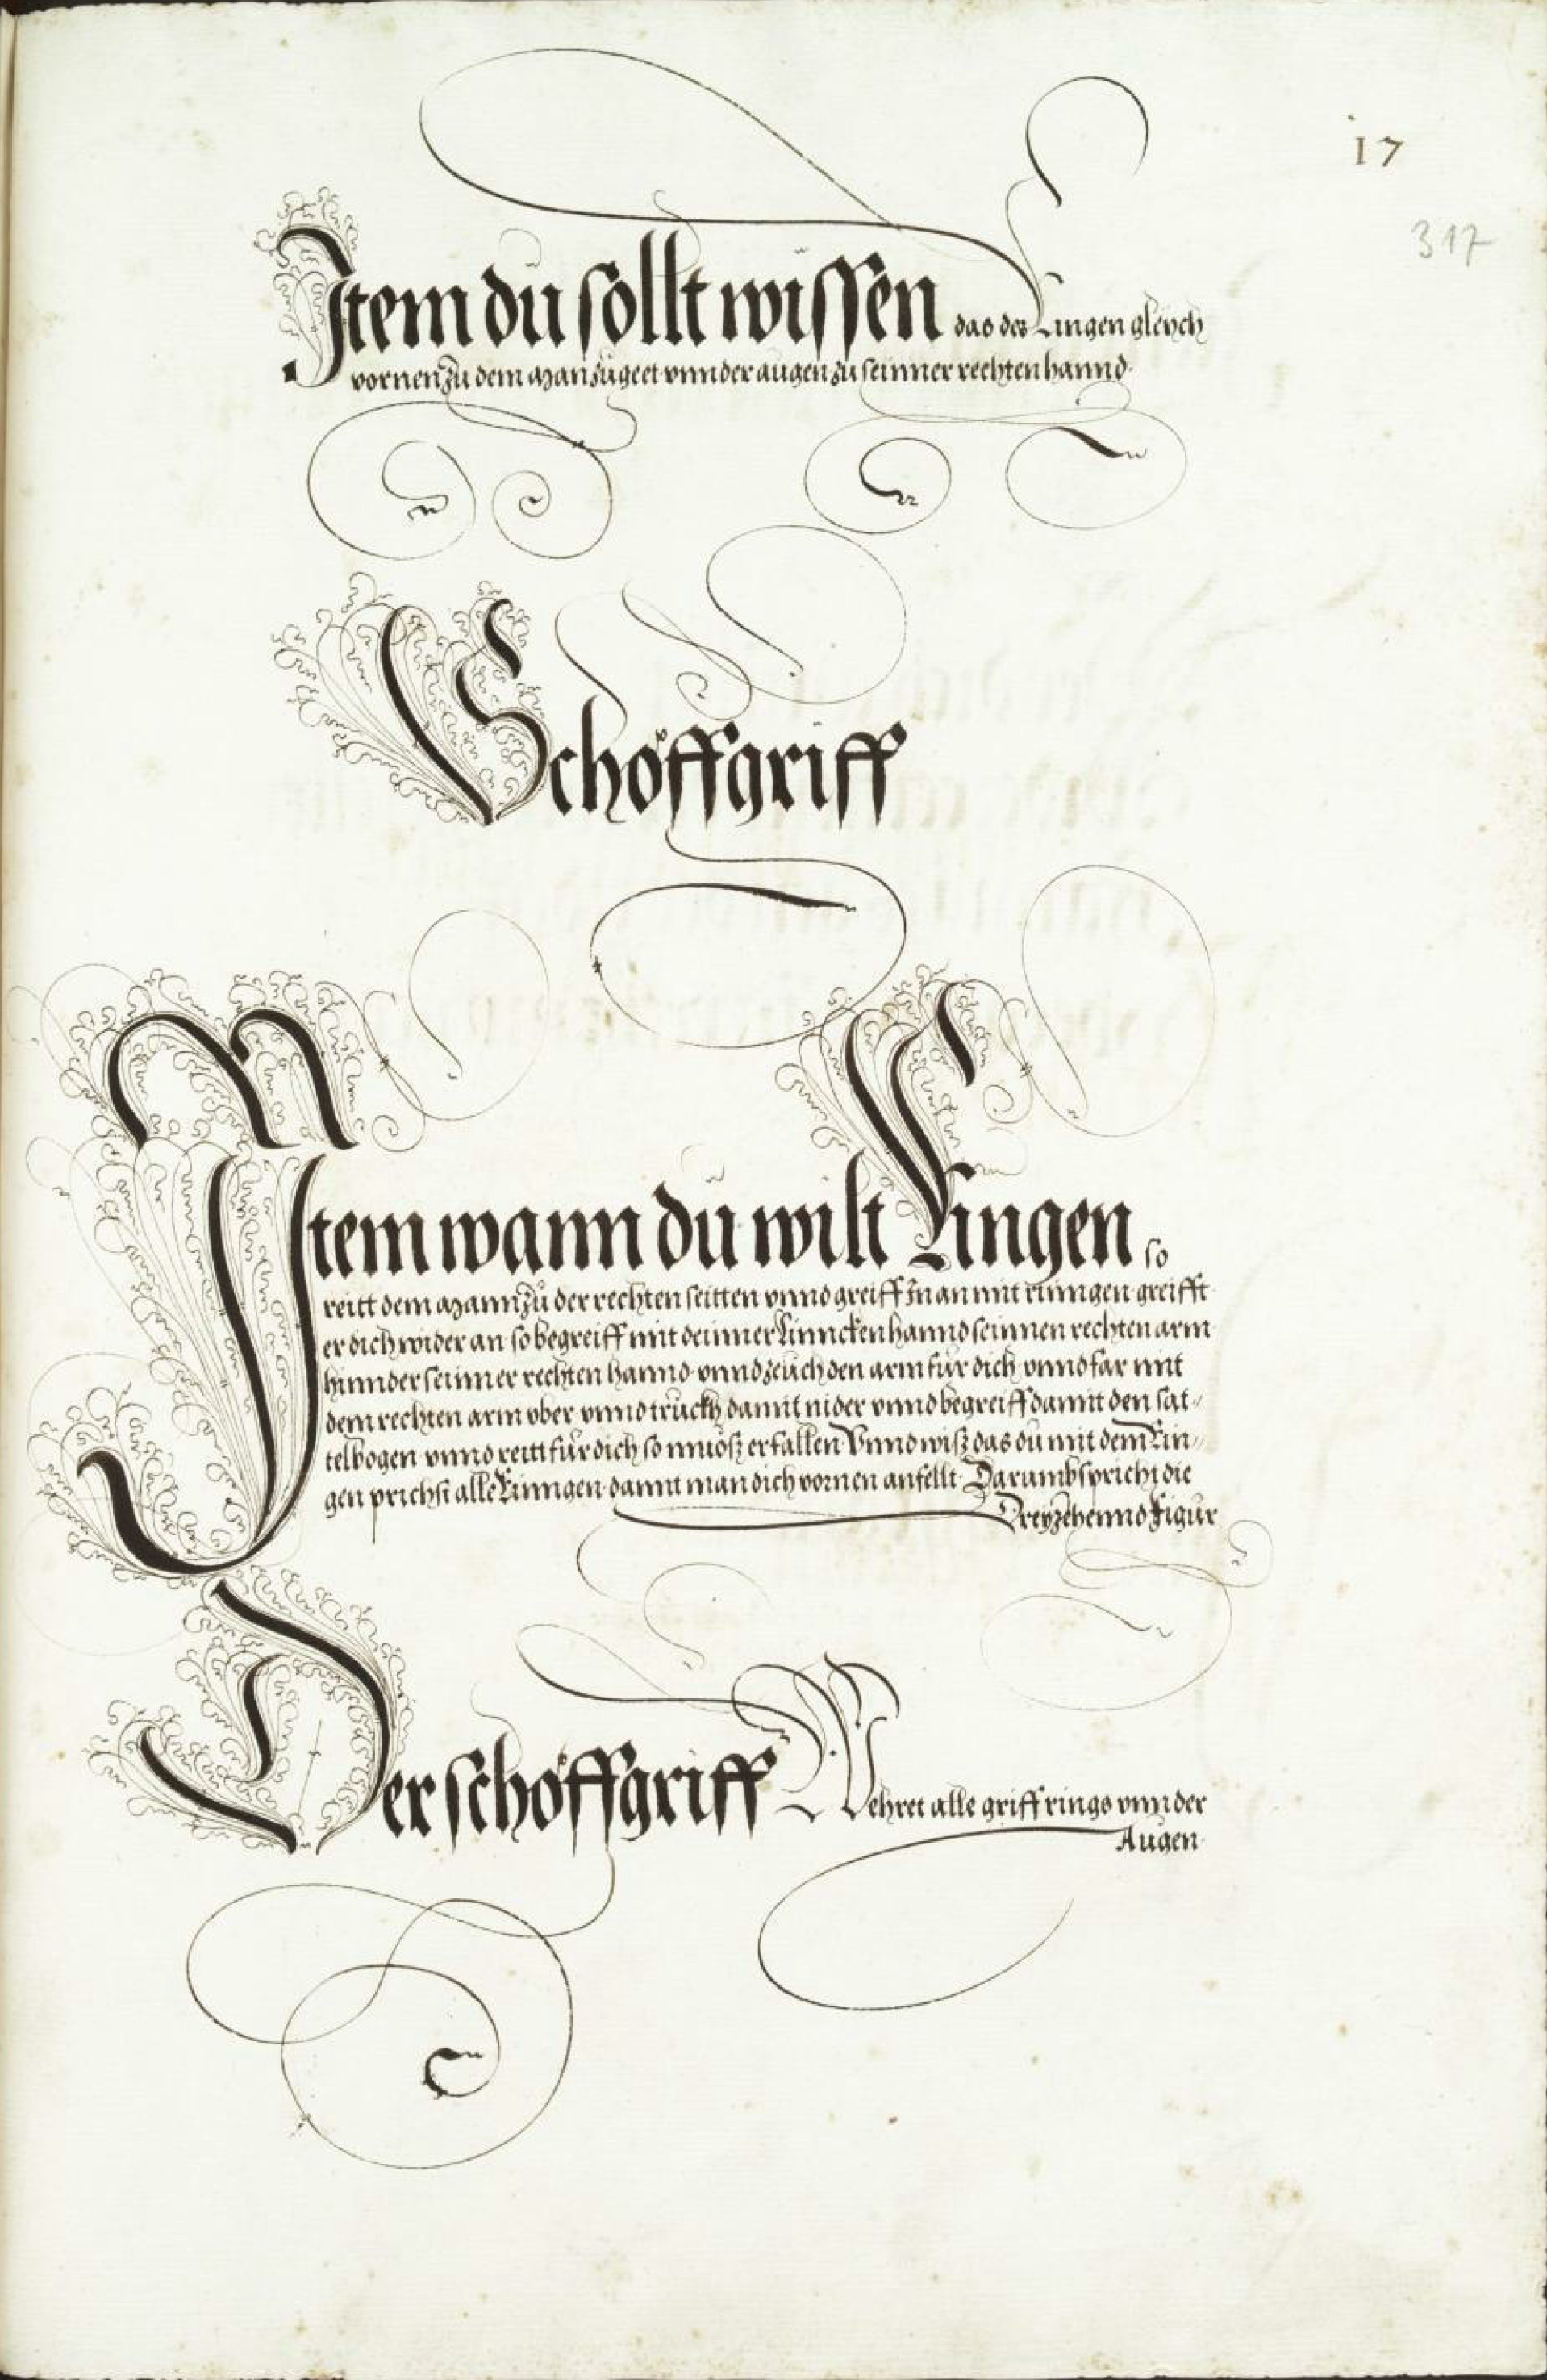 17
317
Item du sollt wissen das des Ringen gleych
vornen zu dem man zu geet vnnder augen zu seinner rechten hannd
Schöffgriff
Item wann du wilt Ringen so
reitt dem mann zů der rechten seitten vnnd greiff In an mit ringen greifft
er dich wider an so begreiff mit deinner Linncken hannd seinnen rechten arm
hinnder seinner rechten hannd vnnd zeuch den arm für dich vnnd far mit
dem rechten arm vber vnnd truckh damit nider vnnd begreiff damit den sat-
telbogen vnnd reitt für dich so muosz er fallen Vnnd wisz das du mit dem Rin-
gen prichst alle Rinngen damit man dich vornen anfellt Darumb spricht die
Dreyzehennd figur
Der schöffgriff Wehret alle griff rings vnnder
Augen